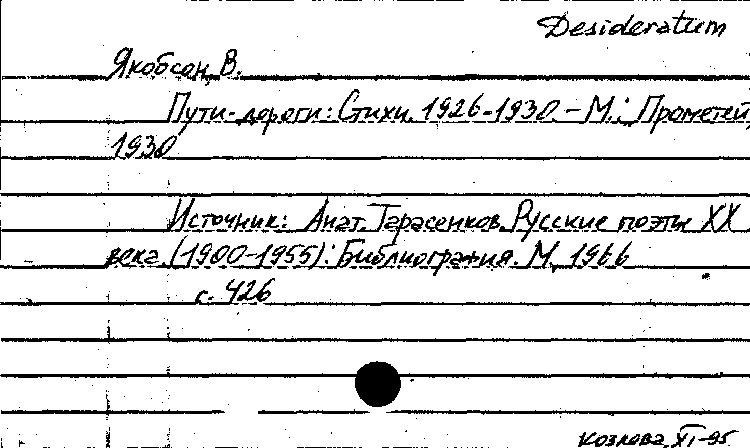 Desideratum
Якобсон, В.
Пути-дороги: Стихи. 1926-1930. - М.: Прометей,
1930
Источник: Анат. Тарасенков. Русские поэты XX
века. (1900-1955): Библиография. М., 1966
с. 426
Козлова XI-95